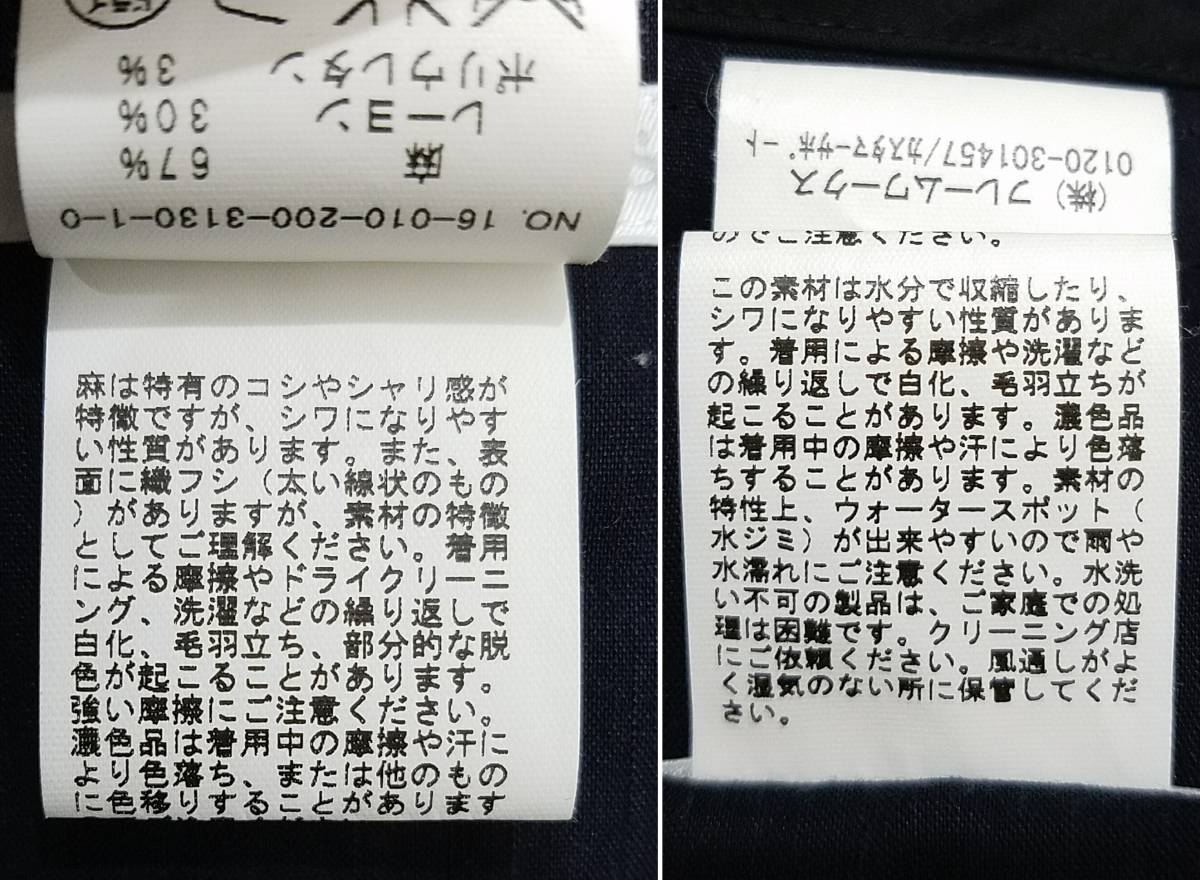 NO. 16-010-200-3130-1-0
麻 67%
レーヨン 30%
ポリウレタン 3%
ドライ
麻は特有のコシやシャリ感が
特徴ですが、シワになりやす
い性質があります。また、表
面に繊フシ（太い線状のもの
）がありますが、素材の特徴
としてご理解ください。着用
による摩擦やドライクリーニ
ング、洗濯などの繰り返しで
白化、毛羽立ち、部分的な脱
色が起こることがあります。
強い摩擦にご注意ください。
濃色品は着用中の摩擦や汗に
より色落ち、または他のもの
に色移りすることがあります
(株) フレームワークス
0120-301457/カスタマーサポート
のでご注意ください。
この素材は水分で収縮したり、
シワになりやすい性質がありま
す。着用による摩擦や洗濯など
の繰り返しで白化、毛羽立ちが
起こることがあります。濃色品
は着用中の摩擦や汗により色落
ちすることがあります。素材の
特性上、ウォータースポット（
水ジミ）が出来やすいので雨や
水濡れにご注意ください。水洗
い不可の製品は、ご家庭での処
理は困難です。クリーニング店
にご依頼ください。風通しがよ
く湿気のない所に保管してくだ
さい。